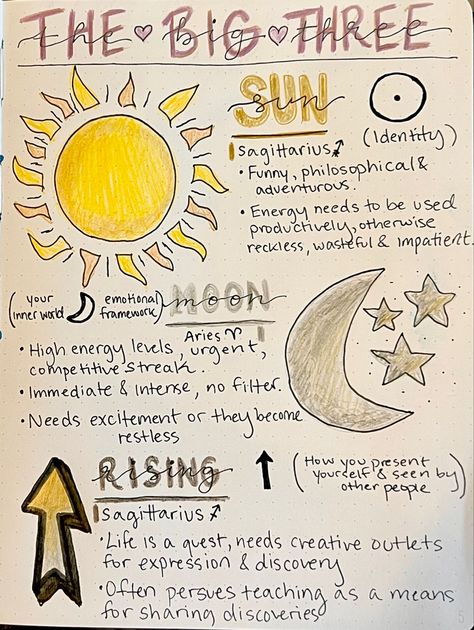 THE ♡ BIG ♡ THREE
the big three
SUN
sun
(Identity)
Sagittarius ♐
• Funny, philosophical &
adventurous.
• Energy needs to be used
productively, otherwise
reckless, wasteful & impatient.
(your inner world ☽ emotional framework)
MOON
moon
Aries ♈
• High energy levels, urgent,
competitive streak.
• Immediate & intense, no filter.
• Needs excitement or they become
restless
RISING
rising
(How you present
yourself & seen by
other people)
Sagittarius ♐
• Life is a quest, needs creative outlets
for expression & discovery
• Often persues teaching as a means
for sharing discoveries
5